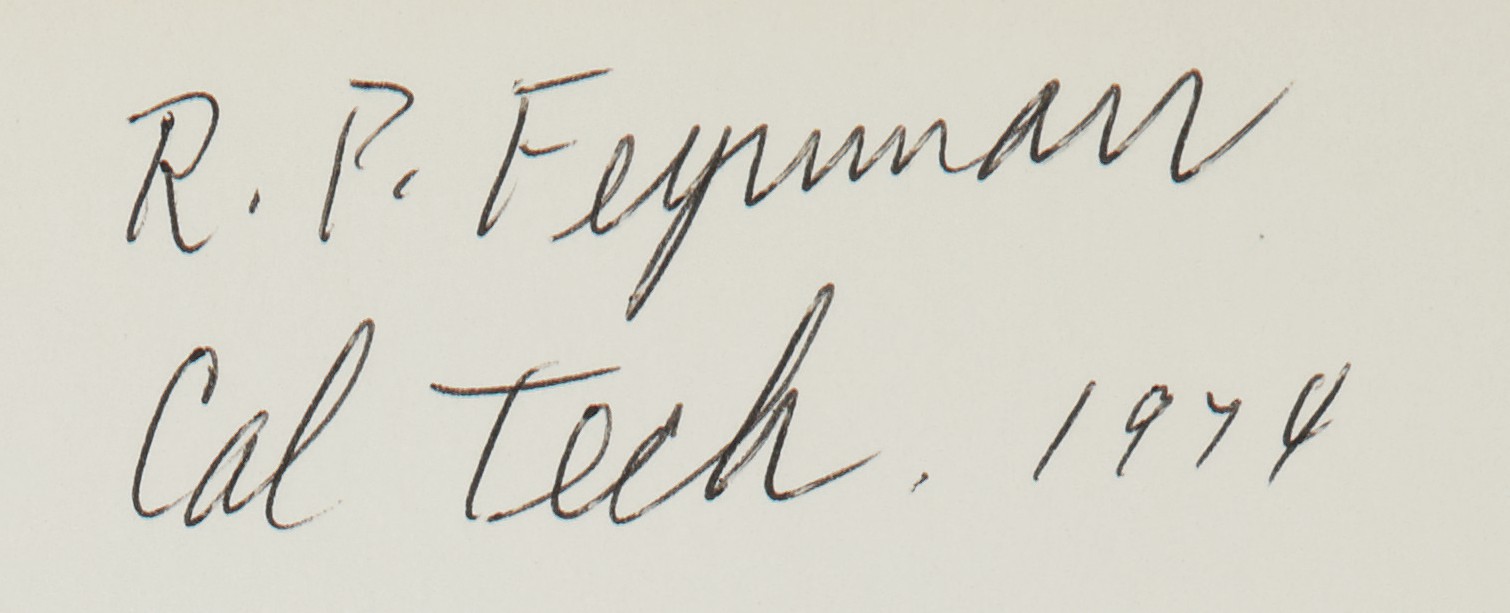 R. P. Feynman
Cal Tech. 1974